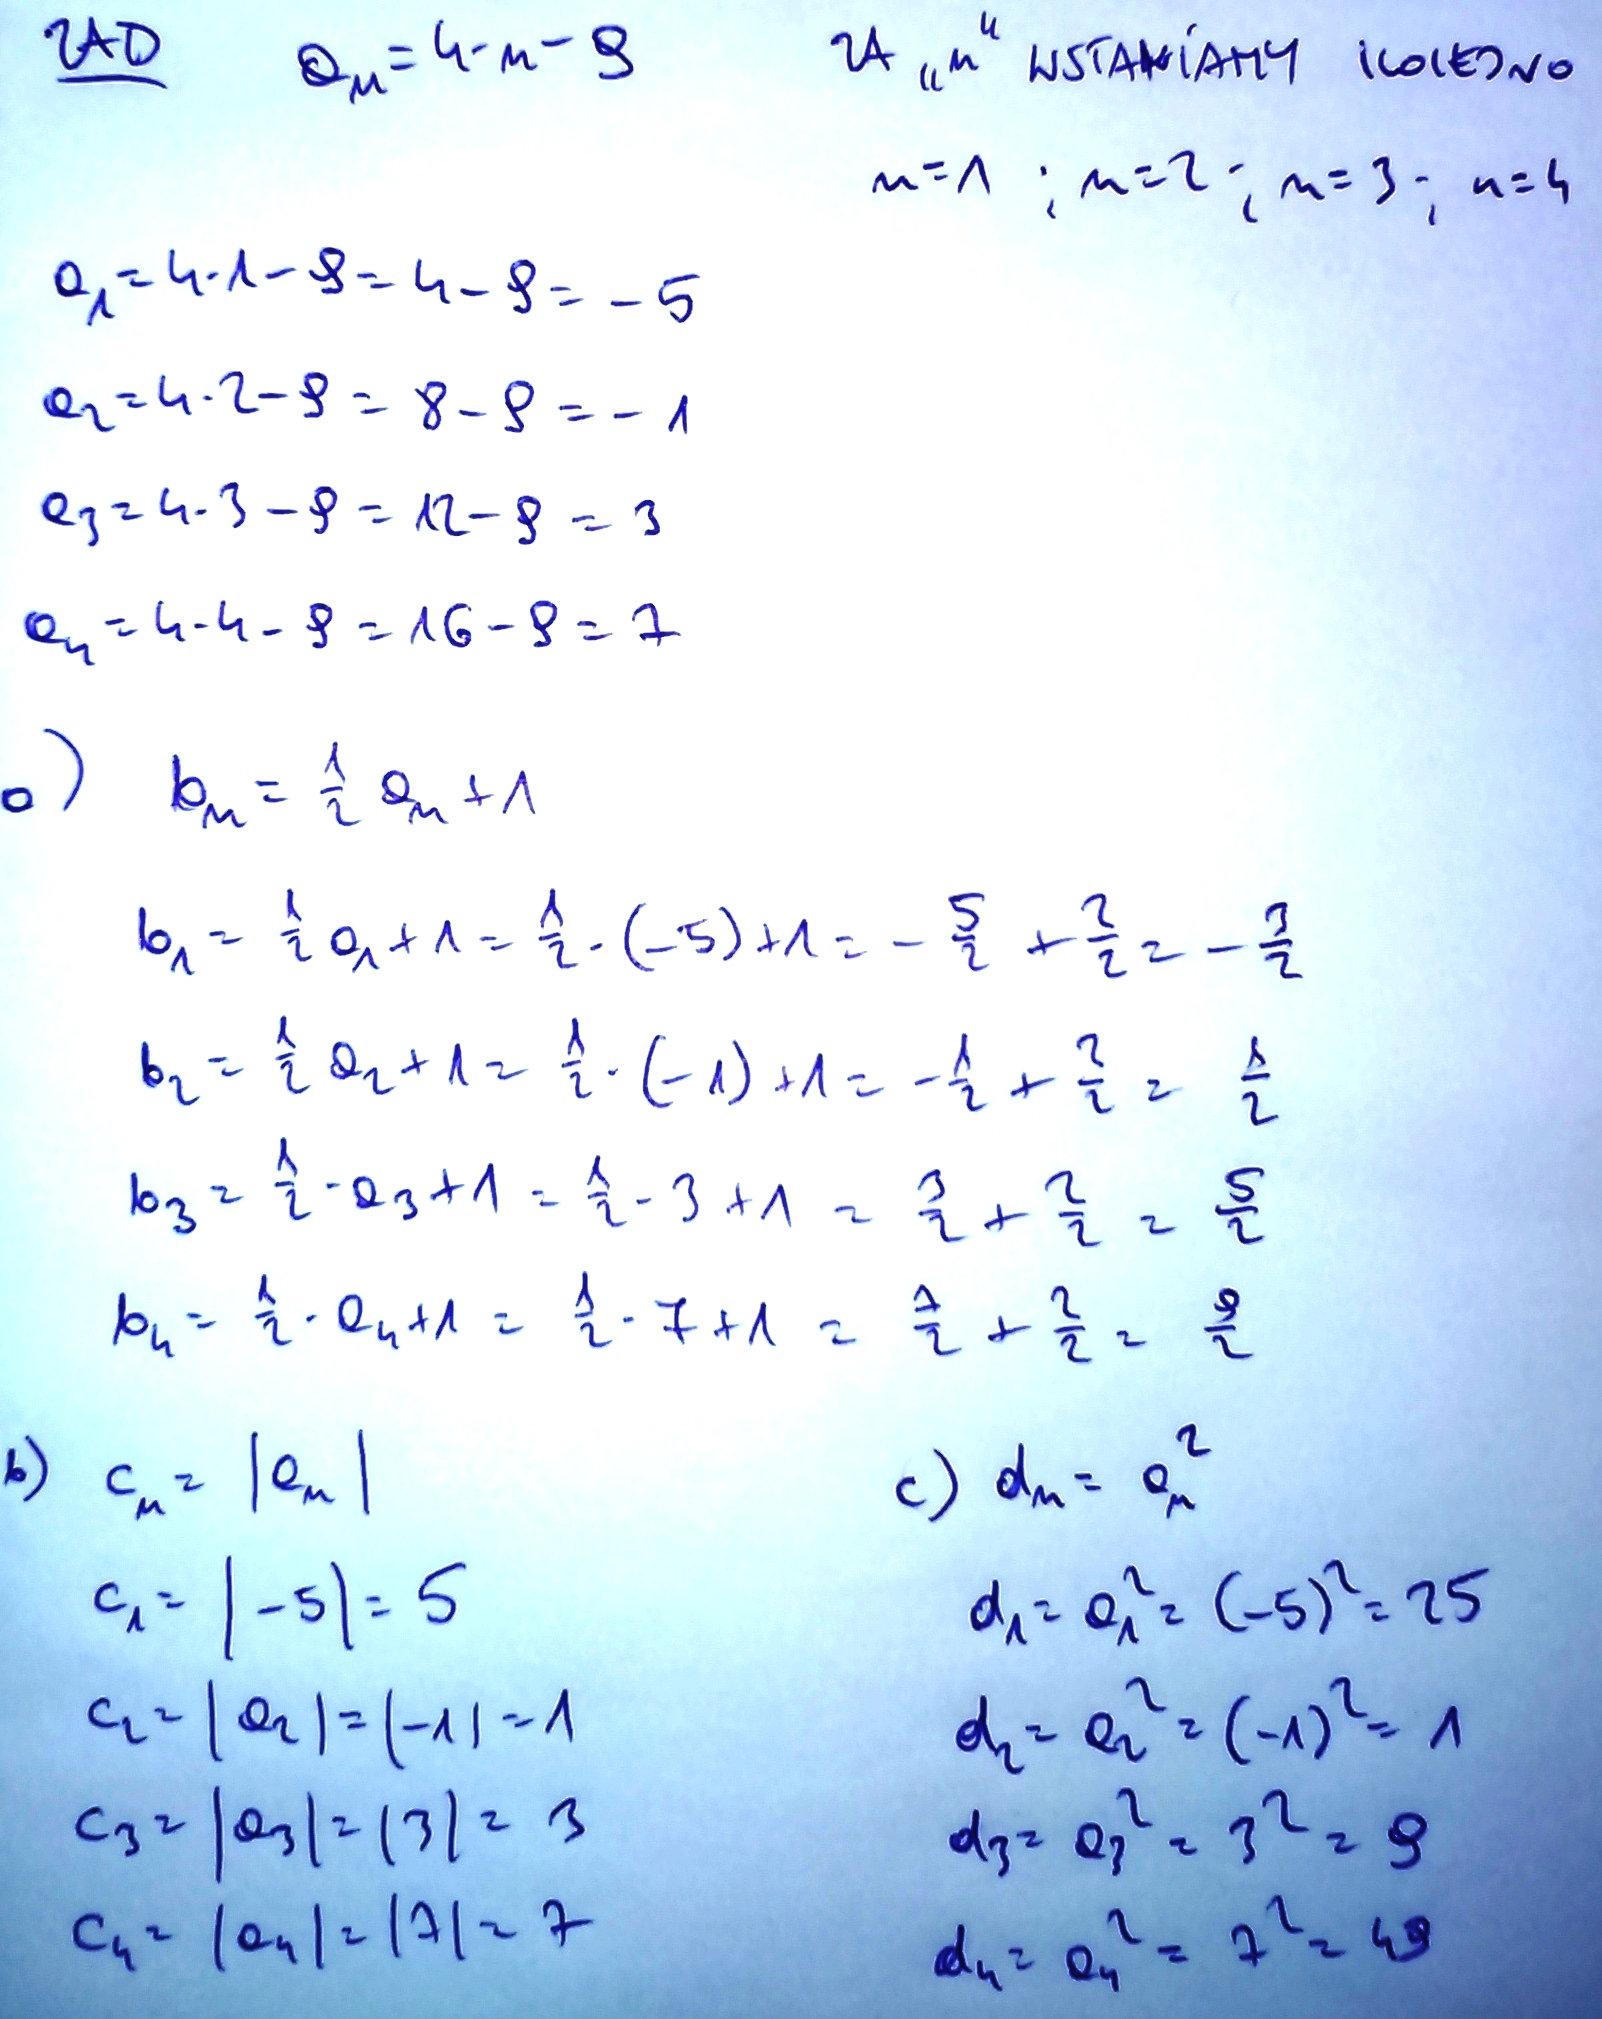 ZAD aₙ = 4·n - 9 ZA „n" WSTAWIAMY KOLEJNO
n=1 ; n=2 ; n=3 ; n=4
a₁ = 4·1 - 9 = 4 - 9 = -5
a₂ = 4·2 - 9 = 8 - 9 = -1
a₃ = 4·3 - 9 = 12 - 9 = 3
a₄ = 4·4 - 9 = 16 - 9 = 7
a) bₙ = 1/2 aₙ + 1
b₁ = 1/2 a₁ + 1 = 1/2 · (-5) + 1 = - 5/2 + 2/2 = - 3/2
b₂ = 1/2 a₂ + 1 = 1/2 · (-1) + 1 = - 1/2 + 2/2 = 1/2
b₃ = 1/2 · a₃ + 1 = 1/2 · 3 + 1 = 3/2 + 2/2 = 5/2
b₄ = 1/2 · a₄ + 1 = 1/2 · 7 + 1 = 7/2 + 2/2 = 9/2
b) cₙ = |aₙ|
c₁ = |-5| = 5
c₂ = |a₂| = |-1| = 1
c₃ = |a₃| = |3| = 3
c₄ = |a₄| = |7| = 7
c) dₙ = aₙ²
d₁ = a₁² = (-5)² = 25
d₂ = a₂² = (-1)² = 1
d₃ = a₃² = 3² = 9
d₄ = a₄² = 7² = 49